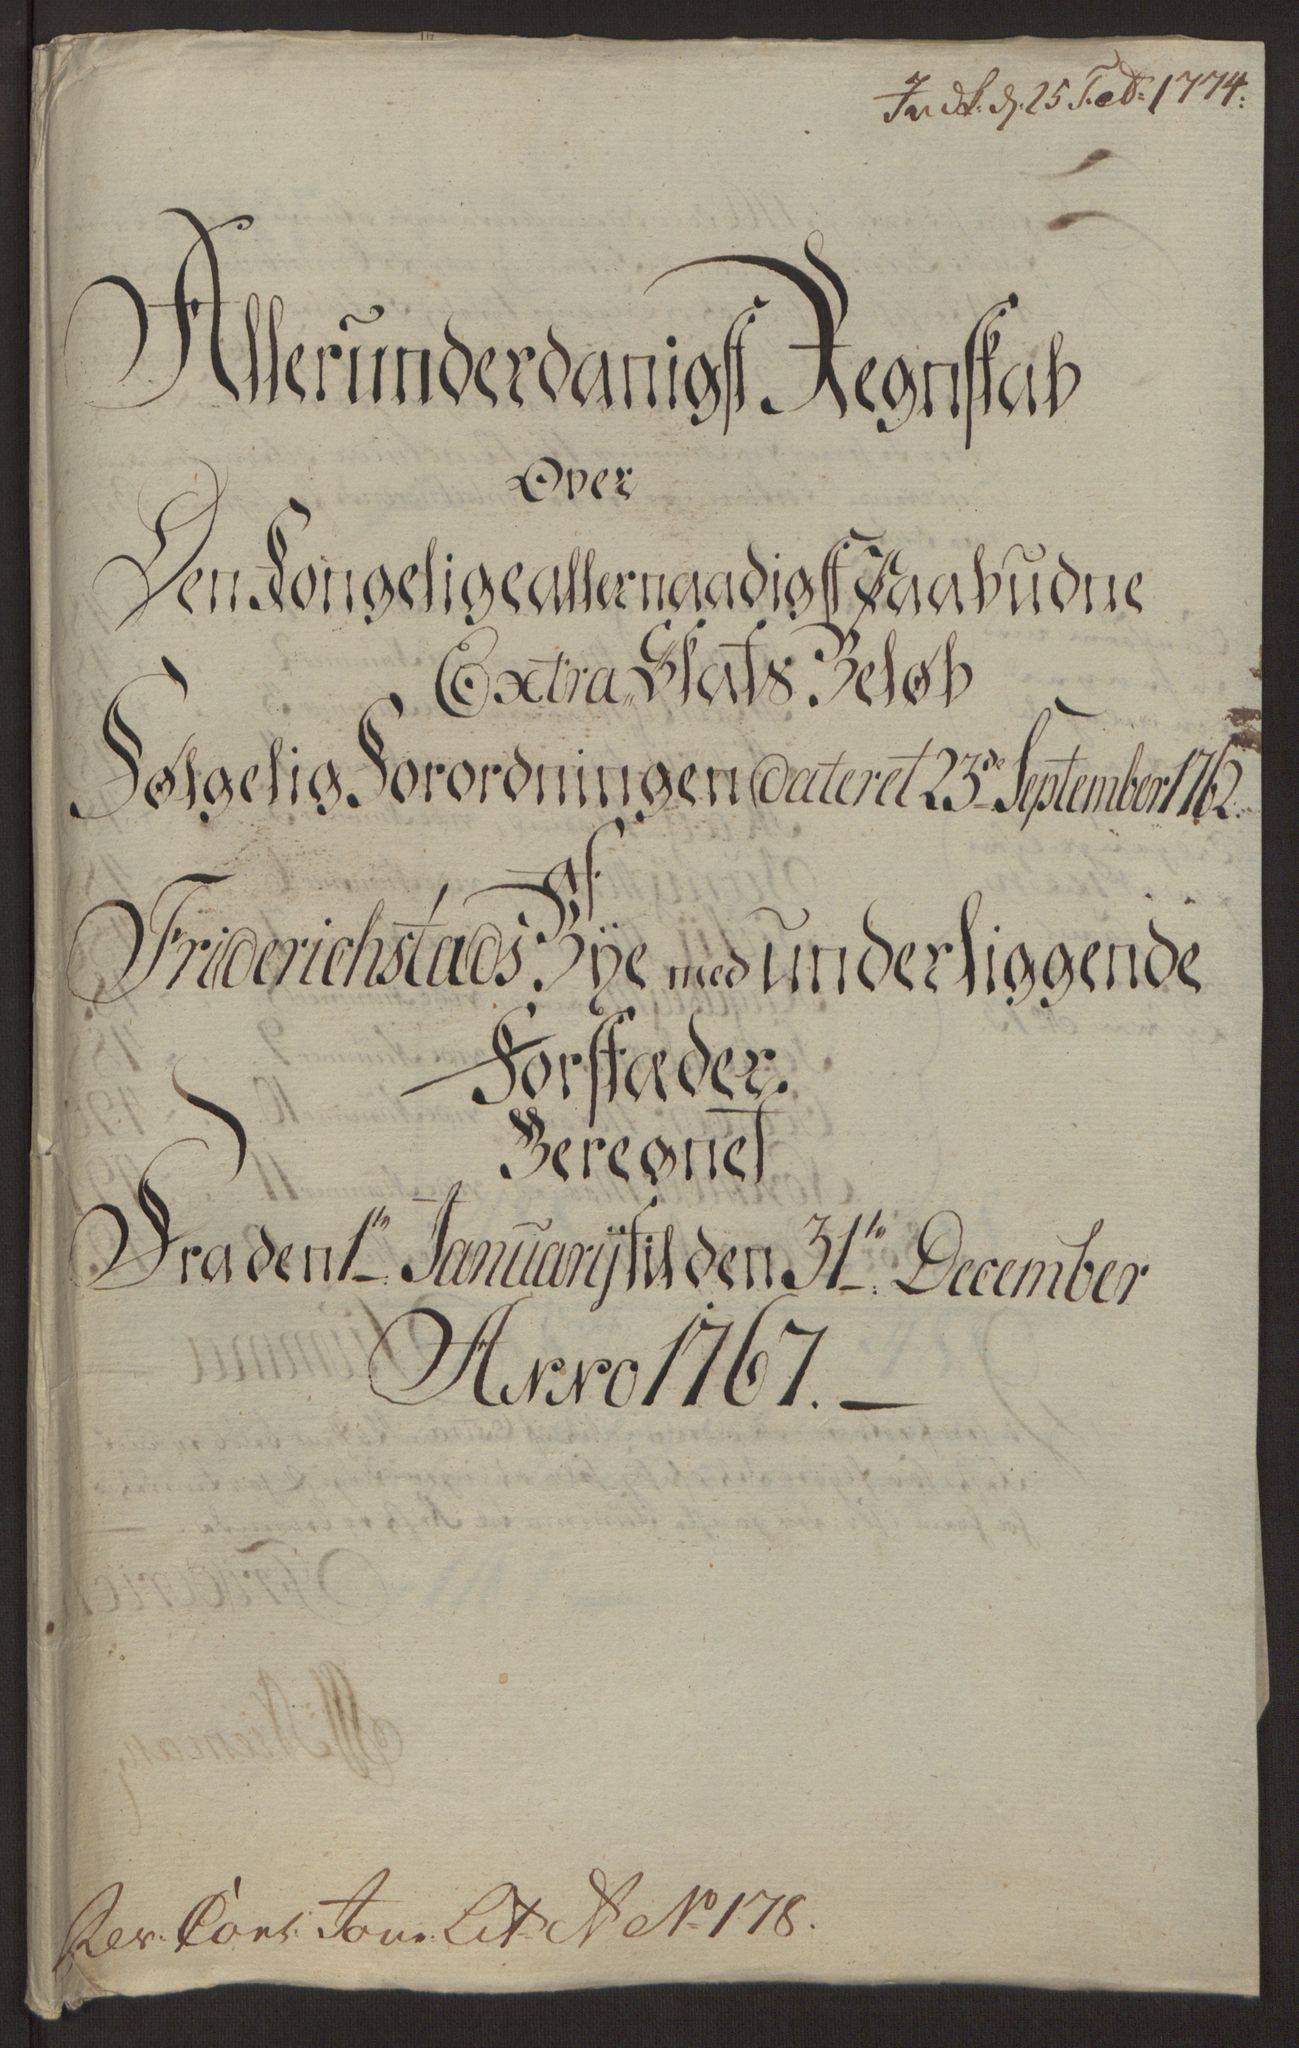 Indk. d. 25 Feb: 1774:
Allerunderdanigst Regnskab
Over
Den Kongelige allernaadigst Paabudne
Extra Skats Beløb
Følgelig Forordningen dateret 23de September 1762.
af
Friderichstads Bÿe med underliggende
Forstæder.
Beregnet
Fra den 1te Januarÿ til den 31te December
Anno 1767.
Rev. Cont. Jour. Lit. N No 178.